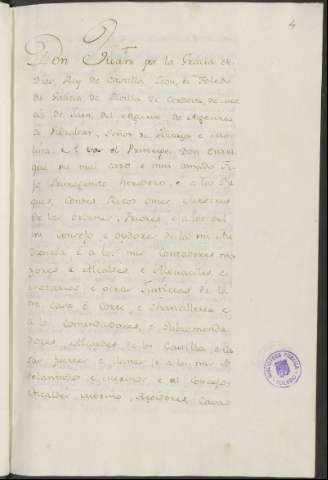 4
Don Juan por la Gracia de
Dios, Rey de Castilla, Leon, de Toledo
de Galicia, de Sevilla de Cordova, de
de Jaen, del Algarve, de Algecira
de Gibraltar, Señor de Vizcaya e Mo
lina. A vos el Principe, Don Enri
que mi mui caro e mui amado Fi
jo Primogenito heredero, e a los Du
ques, Condes Ricos omes, Maestres
de las Ordenes, Priores e a los del
mi Consejo e oydores de la mi Au
diencia e a los mis Contadores ma
yores e Alcaldes e Alguaciles e
Notarios e otras Justicias de la
mi casa e Corte, e Chancilleria e
a los Comendadores, e Subcomenda
dores, Alcaydes de los Castillos e Ca
sas fuertes e llanas, e a los mis A
delantados e merinos e al Concejo,
Alcaldes, merino, Regidores, Cava
BIBLIOTECA PUBLICA
TOLEDO